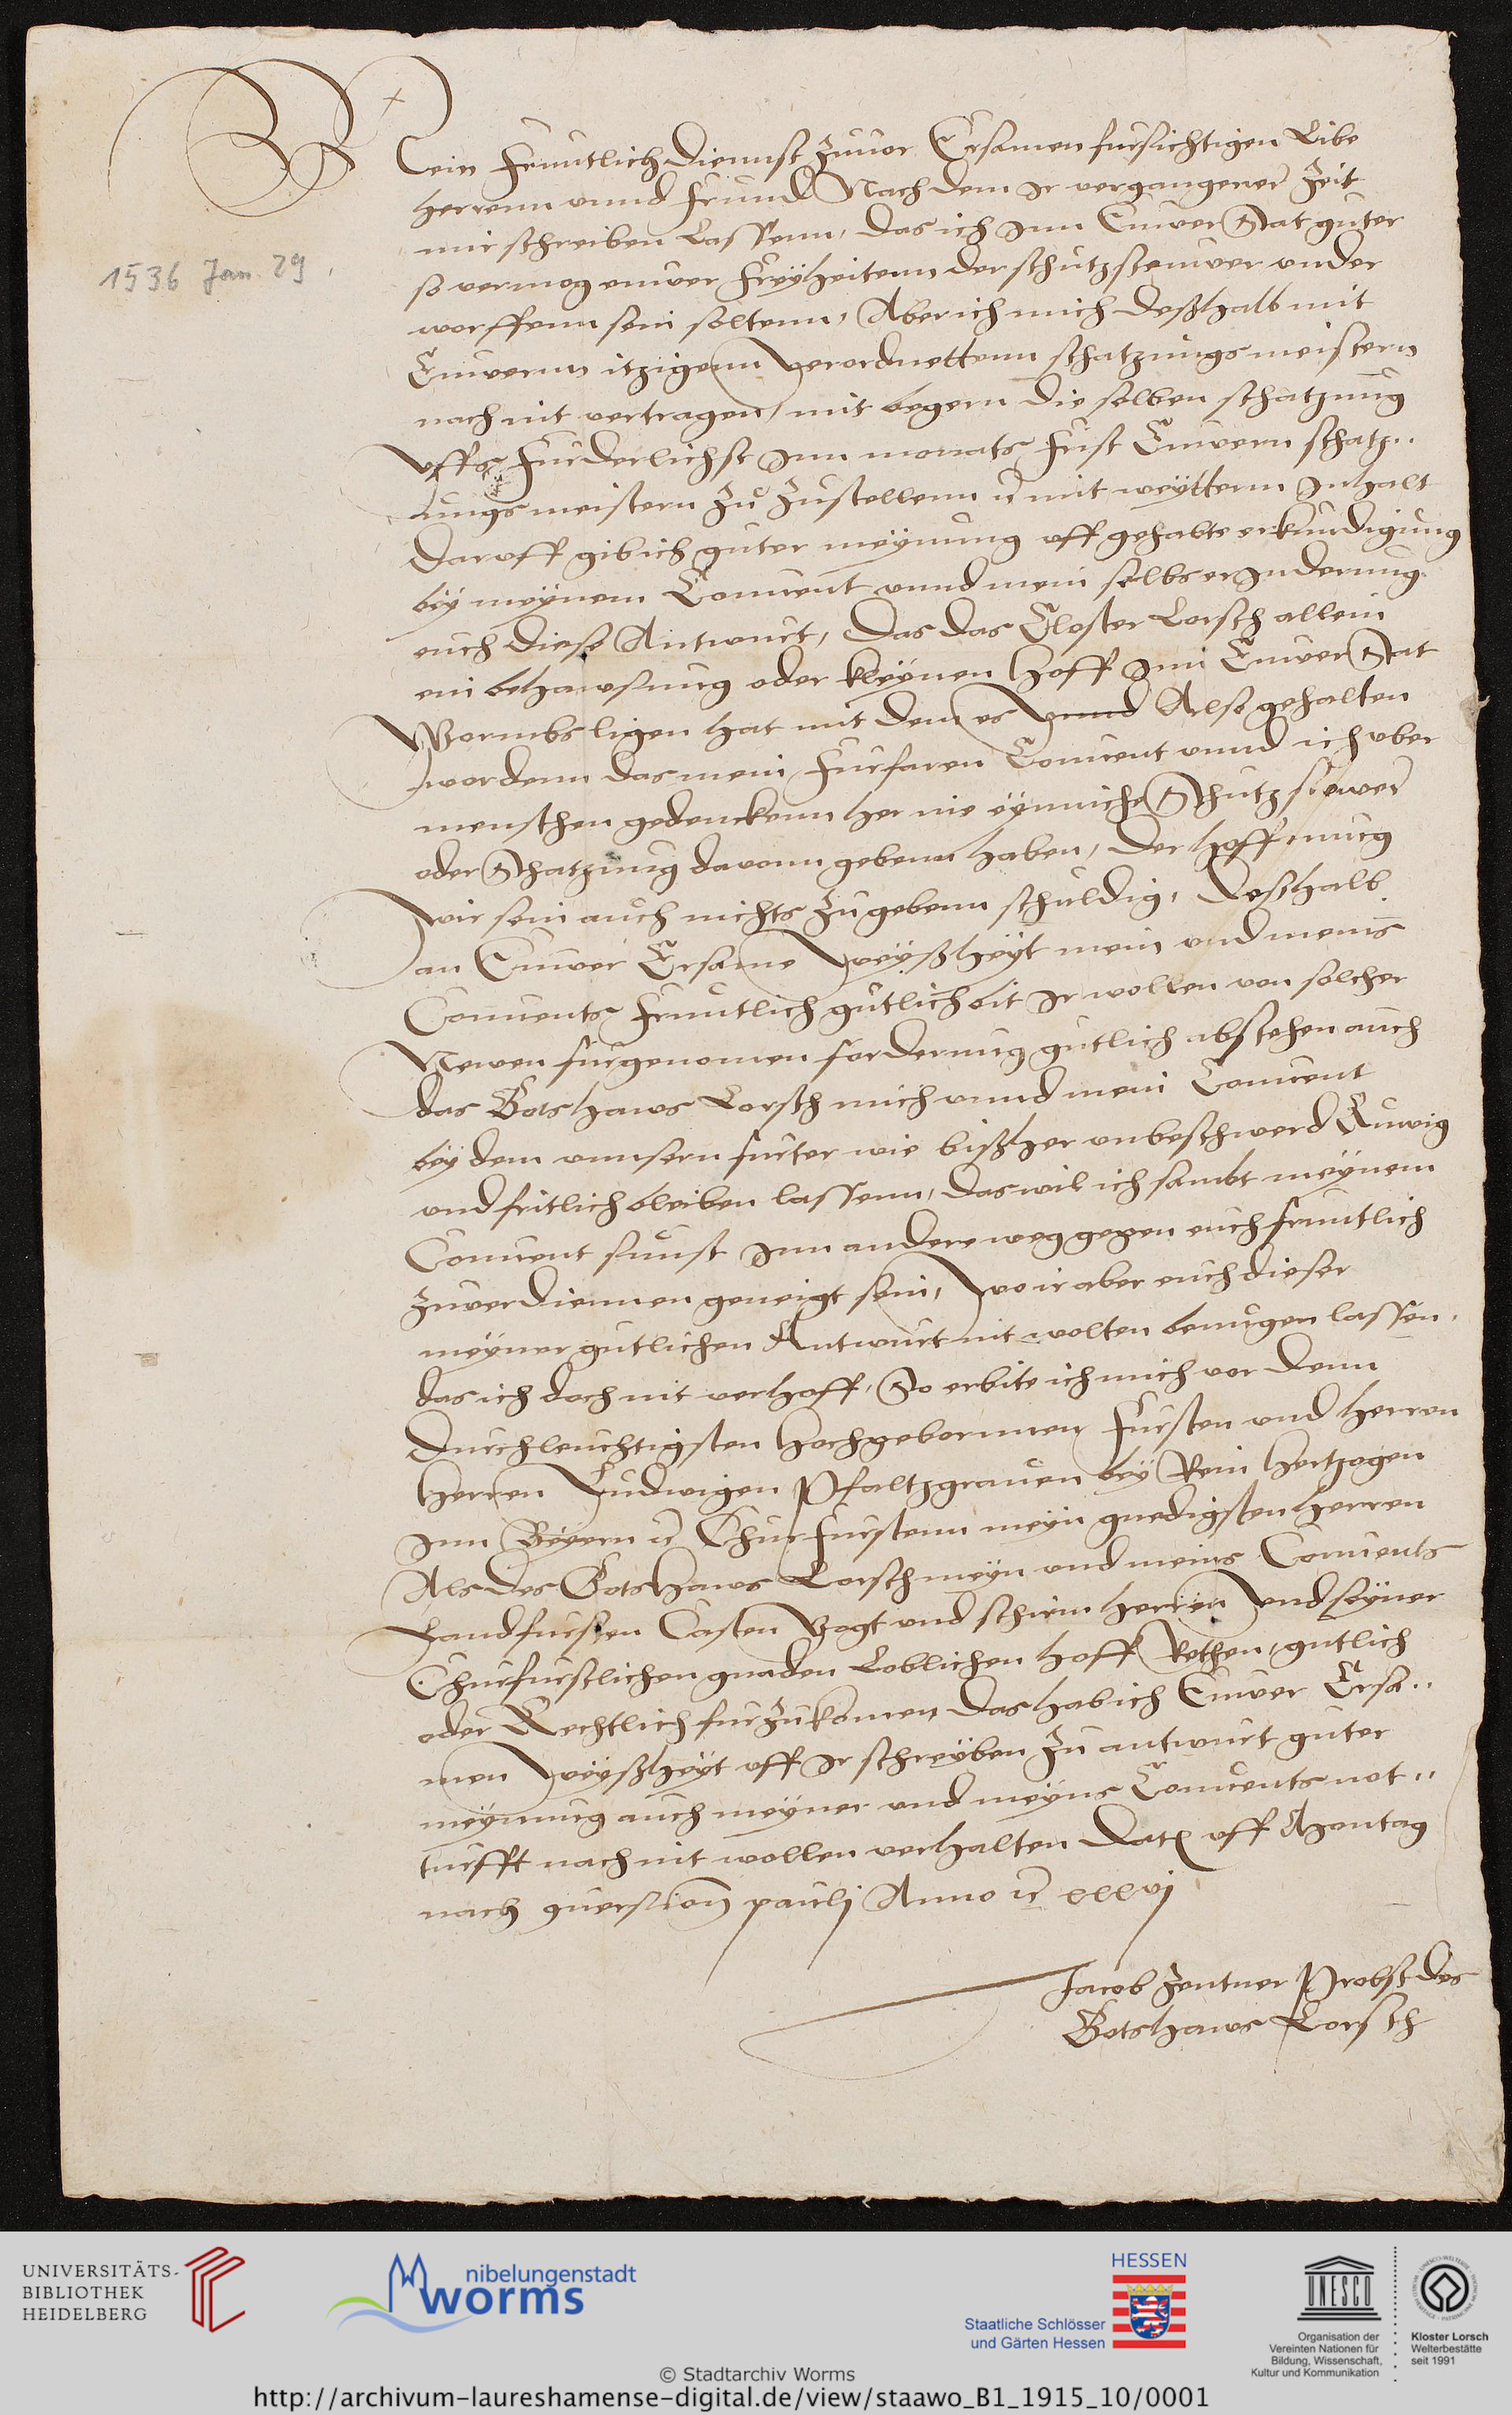 Mein fruntlich Diennst zuuor Ersamen fursichtigen Libe
herrenn vnnd frund Nach dem Ir vergangener Zeit
mir schreiben Lassenn, das ich Inn Euwer Stat guter
so vermog euwer freyheitenn der schutzsteuwer vnder
worffenn sein soltenn, Aber ich mich deßhalb mit
Euwernn itzigenn verordnettenn schatzungs meistern
nach nit vertragen, mit begern die selben schatzung
vffs furderlichst Inn monats frist Euwern schatz..
ungs meistern zu zustellenn etc mit weytterm Inhalt
Daruff gib ich guter meynung vff gehabte erkundigung
bey meynem Conuent vnnd mein selbs erInderung
euch diese Antwurt, Das das Closter Lorsch allein
ein behawsung oder kleynen hoff Inn Euwer Stat
Wormbs ligen hat mit dem es vnnd Also gehalten
wordenn das mein furfaren Conuent vnnd ich vber
menschen gedenckenn her nie eyniche Schutzstewer
oder Schatzung dauonn gebenn haben, Der hoffnung
wir sein auch nichts zugebenn schuldig, Deßhalb
an Euwer Ersame weyßheyt mein vnd meins
Conuents fruntlich gutlich bit Ir wollen von solcher
Newen furgenomen forderung gutlich abstehen auch
das Gotshaws Lorsch mich vnnd mein Conuent
bey dem vnnsern furter wie bißher vnbeschwerd Ruwig
vnd fritlich bleiben lassenn, das wil ich sambt meynem
Conuent sunst Inn andere weg gegen euch fruntlich
zuuerdiennen geneigt sein, wo ir aber euch dieser
meyner gutlichen Antwurt nit wolten benugen lassen.
das ich doch nit verhoff, So erbite ich mich vor dem
Durchleuchtigsten hochgebornnen fursten vnd herren
Herren Ludwigen Pfaltzgrauen bey Rein hertzogen
Inn Beyern etc Churfurstenn meyn gnedigsten herren
Als des Gotshaws Lorsch meyn vnd meins Conuents
Landfursten Casten Vogt vnd schirm herren vnd seyner
Churfurstlichen gnaden Loblichen hoff Rethen, gutlich
oder Rechtlich furzukomen, Das hab ich Euwer Ersa..
men weyßheyt vff Ir schreyben zu antwurt guter
meynung auch meyner vnd meyns Conuents not..
turfft nach nit wollen verhalten Dat vff Montag
nach quersion pauli Anno etc xxxvj
Jacob Zentner Probst des
Gotshaws Lorsch
1536 Jan. 29.
UNIVERSITÄTS-
BIBLIOTHEK
HEIDELBERG
nibelungenstadt
worms
HESSEN
Staatliche Schlösser
und Gärten Hessen
UNESCO
Organisation der
Vereinten Nationen für
Bildung, Wissenschaft,
Kultur und Kommunikation
Kloster Lorsch
Welterbestätte
seit 1991
© Stadtarchiv Worms
http://archivum-laureshamense-digital.de/view/staawo_B1_1915_10/0001